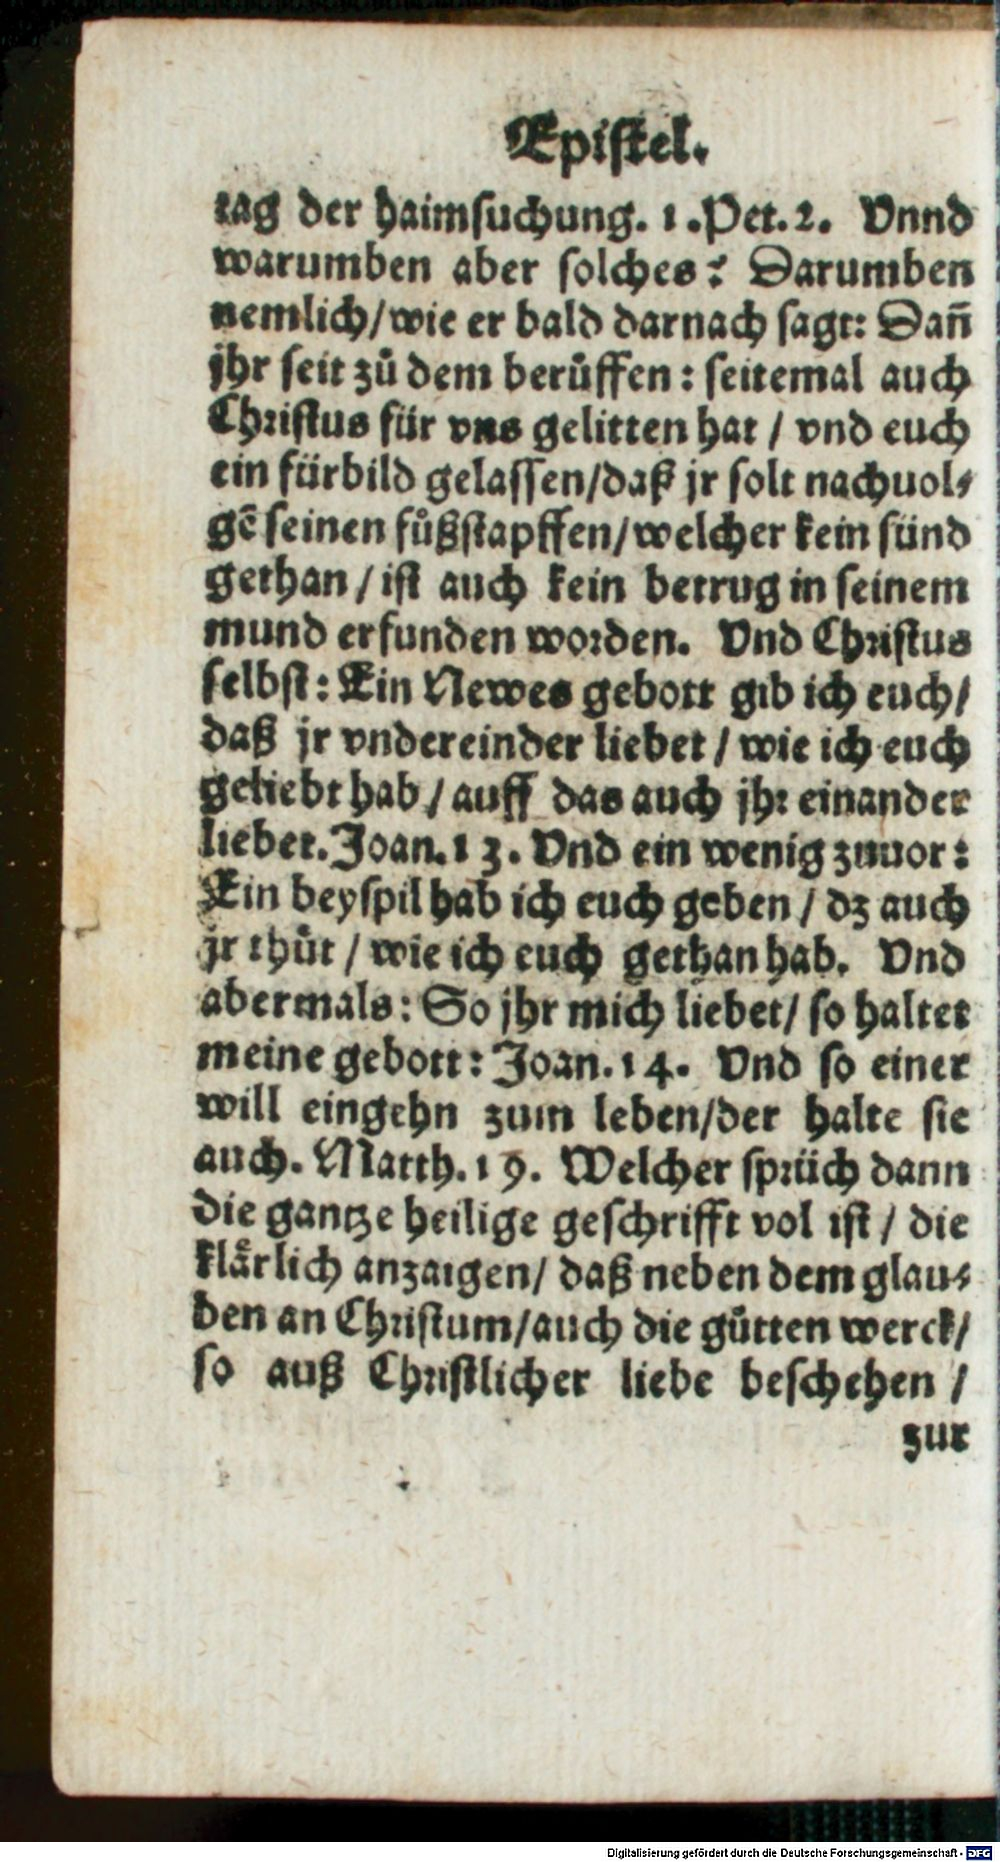 Epistel.
tag der haimsuchung. 1. Pet. 2. Vnnd
warumben aber solches? Darumben
nemlich/wie er bald darnach sagt: Dañ
jhr seit zů dem berůffen: seitemal auch
Christus für vns gelitten hat / vnd euch
ein fürbild gelassen/daß jr solt nachuol⸗
gẽ seinen fůßstapffen/welcher kein sünd
gethan / ist auch kein betrug in seinem
mund erfunden worden. Vnd Christus
selbst: Ein Newes gebott gib ich euch/
daß jr vndereinder liebet / wie ich euch
geliebt hab / auff das auch jhr einander
liebet. Joan. 13. Vnd ein wenig zuuor:
Ein beyspil hab ich euch geben / dz auch
jr thůt / wie ich euch gethan hab. Vnd
abermals: So jhr mich liebet/ so haltet
meine gebott: Joan. 14. Vnd so einer
will eingehn zum leben/der halte sie
auch. Matth. 19. Welcher sprüch dann
die gantze heilige geschrifft vol ist / die
klaͤrlich anzaigen/ daß neben dem glau⸗
ben an Christum/auch die gůtten werck/
so auß Christlicher liebe beschehen /
zur
Digitalisierung gefördert durch die Deutsche Forschungsgemeinschaft - DFG